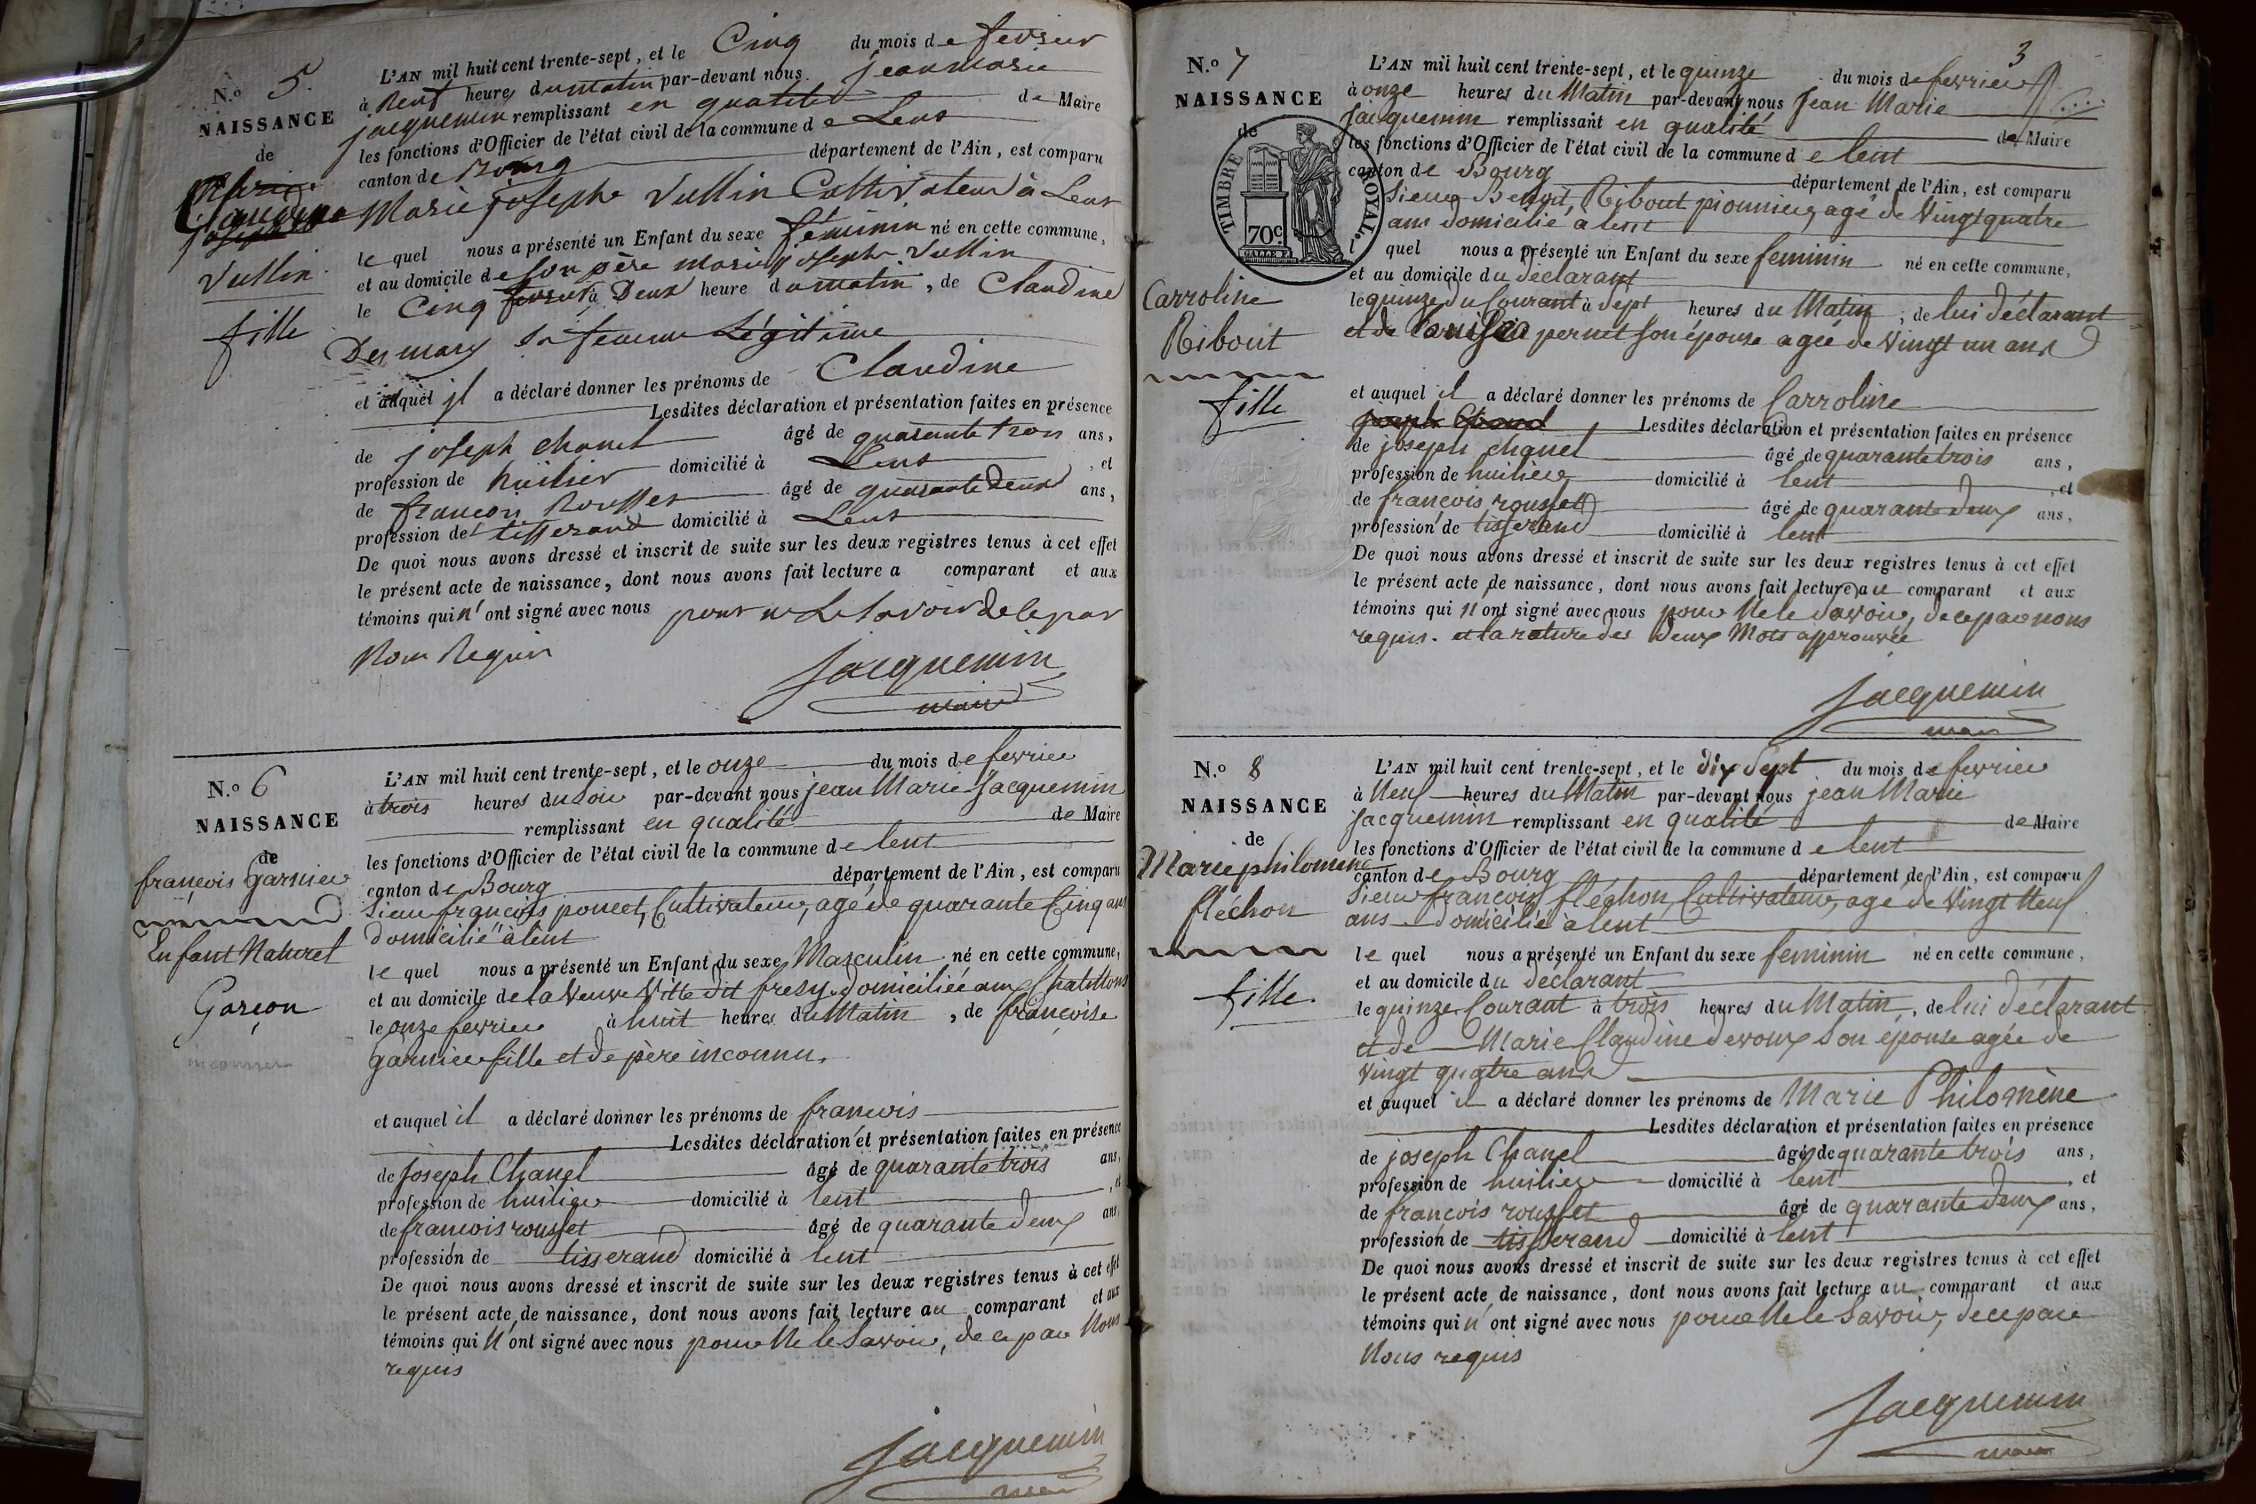 N.º 5.
NAISSANCE
de
Claudine
Vullin
fille
L'AN mil huit cent trente-sept, et le Cinq du mois de fevrier
à Neuf heures du matin par-devant nous jean marie
jacquemin remplissant en qualité de Maire
les fonctions d'Officier de l'état civil de la commune de Lent
canton de Bourg département de l'Ain, est comparu
Marie joseph Vullin Cultivateur à Lent
le quel nous a présenté un Enfant du sexe feminin né en cette commune,
et au domicile de son père marie joseph Vullin
le Cinq fevrier à Deux heure du matin, de Claudine
Desmary sa femme Légitime
et auquel il a déclaré donner les prénoms de Claudine
Lesdites déclaration et présentation faites en présence
de joseph chanel âgé de quarante trois ans,
profession de huilier domicilié à Lent, et
de françois Rousset âgé de quarante deux ans,
profession de tisserand domicilié à Lent
De quoi nous avons dressé et inscrit de suite sur les deux registres tenus à cet effet
le présent acte de naissance, dont nous avons fait lecture a comparant et aux
témoins qui n'ont signé avec nous pour ne Le savoir de ce par
Nous Requis
Jacquemin
maire
N.º 6
NAISSANCE
de
françois garnier
Enfant Naturel
Garçon
inconnu
L'AN mil huit cent trente-sept, et le onze du mois de fevrier
à trois heures du soir par-devant nous jean Marie Jacquemin
remplissant en qualité de Maire
les fonctions d'Officier de l'état civil de la commune de lent
canton de Bourg département de l'Ain, est comparu
Sieur françois poncet, Cultivateur, agé de quarante Cinq ans
domicilié à lent
le quel nous a présenté un Enfant du sexe Masculin né en cette commune,
et au domicile de la Veuve Vitte dit fresy domiciliée aux Chatillons
le onze fevrier à huit heures du Matin, de françoise
garnier fille et de père inconnu.
et auquel il a déclaré donner les prénoms de francois
Lesdites déclaration et présentation faites en présence
de Joseph Chanel âgé de quarante trois ans,
profession de huilier domicilié à lent, et
de francois rousset âgé de quarante deux ans,
profession de tisserand domicilié à lent
De quoi nous avons dressé et inscrit de suite sur les deux registres tenus à cet effet
le présent acte de naissance, dont nous avons fait lecture au comparant et aux
témoins qui n'ont signé avec nous pour Ne le Savoir, de ce par Nous
requis
Jacquemin
maire
3
N.º 7
NAISSANCE
de
TIMBRE ROYAL.
70c
Carroline
Ribout
fille
L'AN mil huit cent trente-sept, et le quinze du mois de fevrier
à onze heures du Matin par-devant nous Jean Marie
Jacquemin remplissant en qualité de Maire
les fonctions d'Officier de l'état civil de la commune de lent
canton de Bourg département de l'Ain, est comparu
Sieur Benoit Ribout pionnier, agé de Vingt quatre
ans domicilié à lent
l quel nous a présenté un Enfant du sexe feminin né en cette commune,
et au domicile du déclarant
le quinze du Courant à sept heures du Matin, de lui déclarant
et de Louise pernet son épouse agée de Vingt un ans
et auquel il a déclaré donner les prénoms de Carroline
Lesdites déclaration et présentation faites en présence
de joseph chanel âgé de quarante trois ans,
profession de huilier domicilié à lent, et
de françois rousset âgé de quarante deux ans,
profession de tisserand domicilié à lent
De quoi nous avons dressé et inscrit de suite sur les deux registres tenus à cet effet
le présent acte de naissance, dont nous avons fait lecture au comparant et aux
témoins qui n'ont signé avec nous pour Ne le Savoir, de ce par nous
requis. et la rature des deux Mots approuvée
Jacquemin
maire
N.º 8
NAISSANCE
de
Marie philomène
fléchon
fille.
L'AN mil huit cent trente-sept, et le dix Sept du mois de fevrier
à Neuf heures du Matin par-devant nous jean Marie
Jacquemin remplissant en qualité de Maire
les fonctions d'Officier de l'état civil de la commune de lent
canton de Bourg département de l'Ain, est comparu
Sieur françois fléchon, Cultivateur, agé de Vingt Neuf
ans domicilié à lent
le quel nous a présenté un Enfant du sexe feminin né en cette commune,
et au domicile du déclarant
le quinze Courant à trois heures du Matin, de lui déclarant
et de Marie Claudine devoux Son épouse agée de
Vingt quatre ans
et auquel il a déclaré donner les prénoms de Marie Philomène
Lesdites déclaration et présentation faites en présence
de joseph Chanel âgé de quarante trois ans,
profession de huilier domicilié à lent, et
de françois rousset âgé de quarante deux ans,
profession de tisserand domicilié à lent
De quoi nous avons dressé et inscrit de suite sur les deux registres tenus à cet effet
le présent acte de naissance, dont nous avons fait lecture au comparant et aux
témoins qui n'ont signé avec nous pour Ne le Savoir, de ce par
Nous requis
Jacquemin
maire